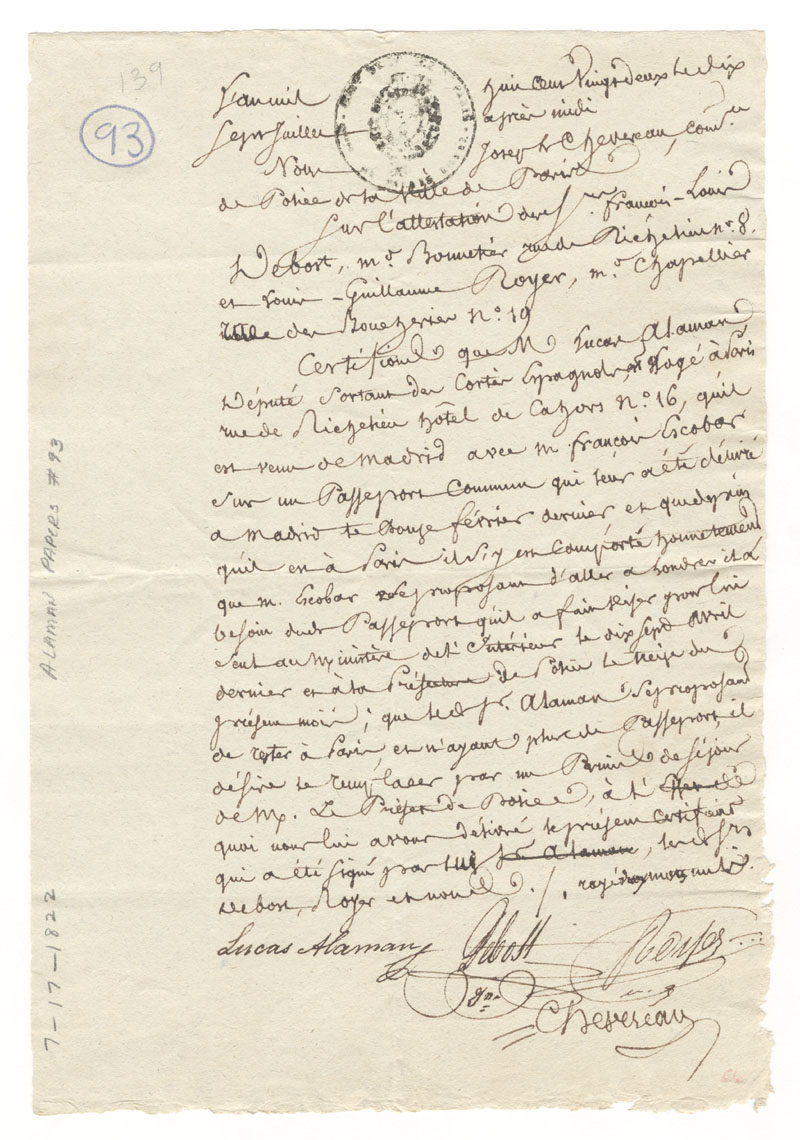 139
93
L'an mil huit cent Vingt deux le dix
Sept Juillet après midi
Nous Joseph Chevereau, com.re
de Police de la Ville de Paris
Sur l'attestation des S.rs françois-Louis
Debost, m.d Bonnetier rue de Richelieu n.o 8.
et Louis-Guillaume Royer, m.d Chapellier
rue des Boucheries N.o 19
Certifions que M Lucas Alaman
Député Sortant des Cortès Espagnols, Logé à Paris
rue de Richelieu hôtel de Cahors N.o 16, qu'il
est venu de Madrid avec m. françois Escobar
Sur un Passeport Commun qui leur a été délivré
a Madrid le Douze février dernier et que depuis
qu'il est à Paris il s'y est Comporté honnetement
que m. Escobar se proposant d'aller a Londres il a
besoin dudt Passeport qu'il a fait viser pour lui
seul au Ministère de l'Intérieur le dix Sept Avril
dernier et à la Préfecture de Police le treize du
présent mois; que led. Sr. Alaman Se proposant
de rester à Paris, et n'ayant plus de Passeport, il
désire le remplacer par un Permis de Séjour
de M. Le Préfet de Police, à l'Effet de
quoi nous lui avons délivré le présent Certificat
qui a été signé par lui Sr. Alaman, lesd. Srs
Debost, Royer et nous. rayé mots nuls.
Lucas Alaman Debost Royer
Chevereau
ALAMAN PAPERS #93
7-17-1822